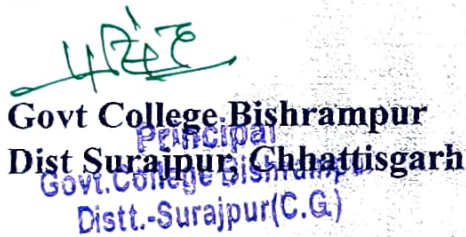 Govt College Bishrampur
Principal
Dist Surajpur, Chhattisgarh
Govt. College Bishrampur
Distt.-Surajpur(C.G.)